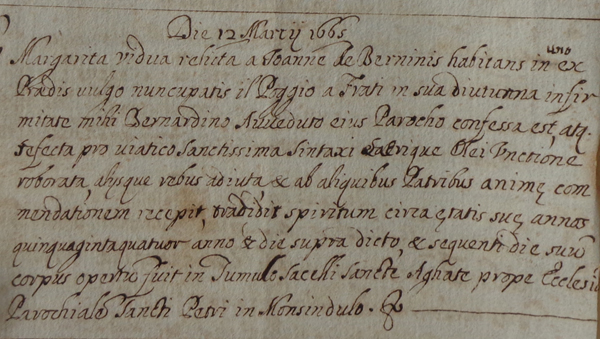 Die 12 Martij 1665
Margarita vidua relicta a Joanne de Berninis habitans in uno ex
Prædis vulgo nuncupatis il Poggio a Frati in sua diuturna infir
mitate mihi Bernardino Avveduto eius Parocho confessa est, atq.
refecta pro viatico Sanctissima Sintaxi Sacrique Olei Unctione
roborata, alysque rebus adiuta & ab aliquibus Patribus animę com
mendationem recepit, tradidit spiritum circa ętatis suę annos
quinquagintaquatuor anno & die supra dicto, & sequenti die suũ
corpus opertũ fuit in Tumulo Sacelli Sanctę Aghate prope Ecclesiã
Parochialẽ Sancti Petri in Monsindulo.